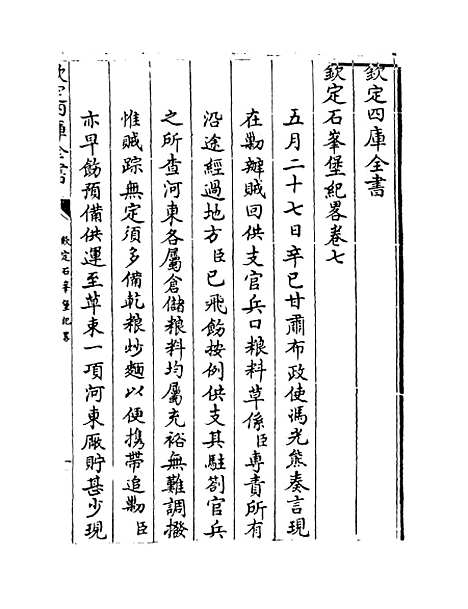 欽定四庫全書
欽定石峯堡紀畧卷七
五月二十七日辛巳甘肅布政使馮光熊奏言現
在勦辦賊回供支官兵口粮料草係臣専責所有
沿途經過地方臣已飛飭按例供支其駐劄官兵
之所查河東各屬倉儲粮料均屬充裕無難調撥
惟賊踪無定須多備乾粮炒麵以便携帶追勦臣
亦早飭預備供運至草束一項河東厫貯甚少現
欽定四庫全書
欽定石峯堡紀畧
一